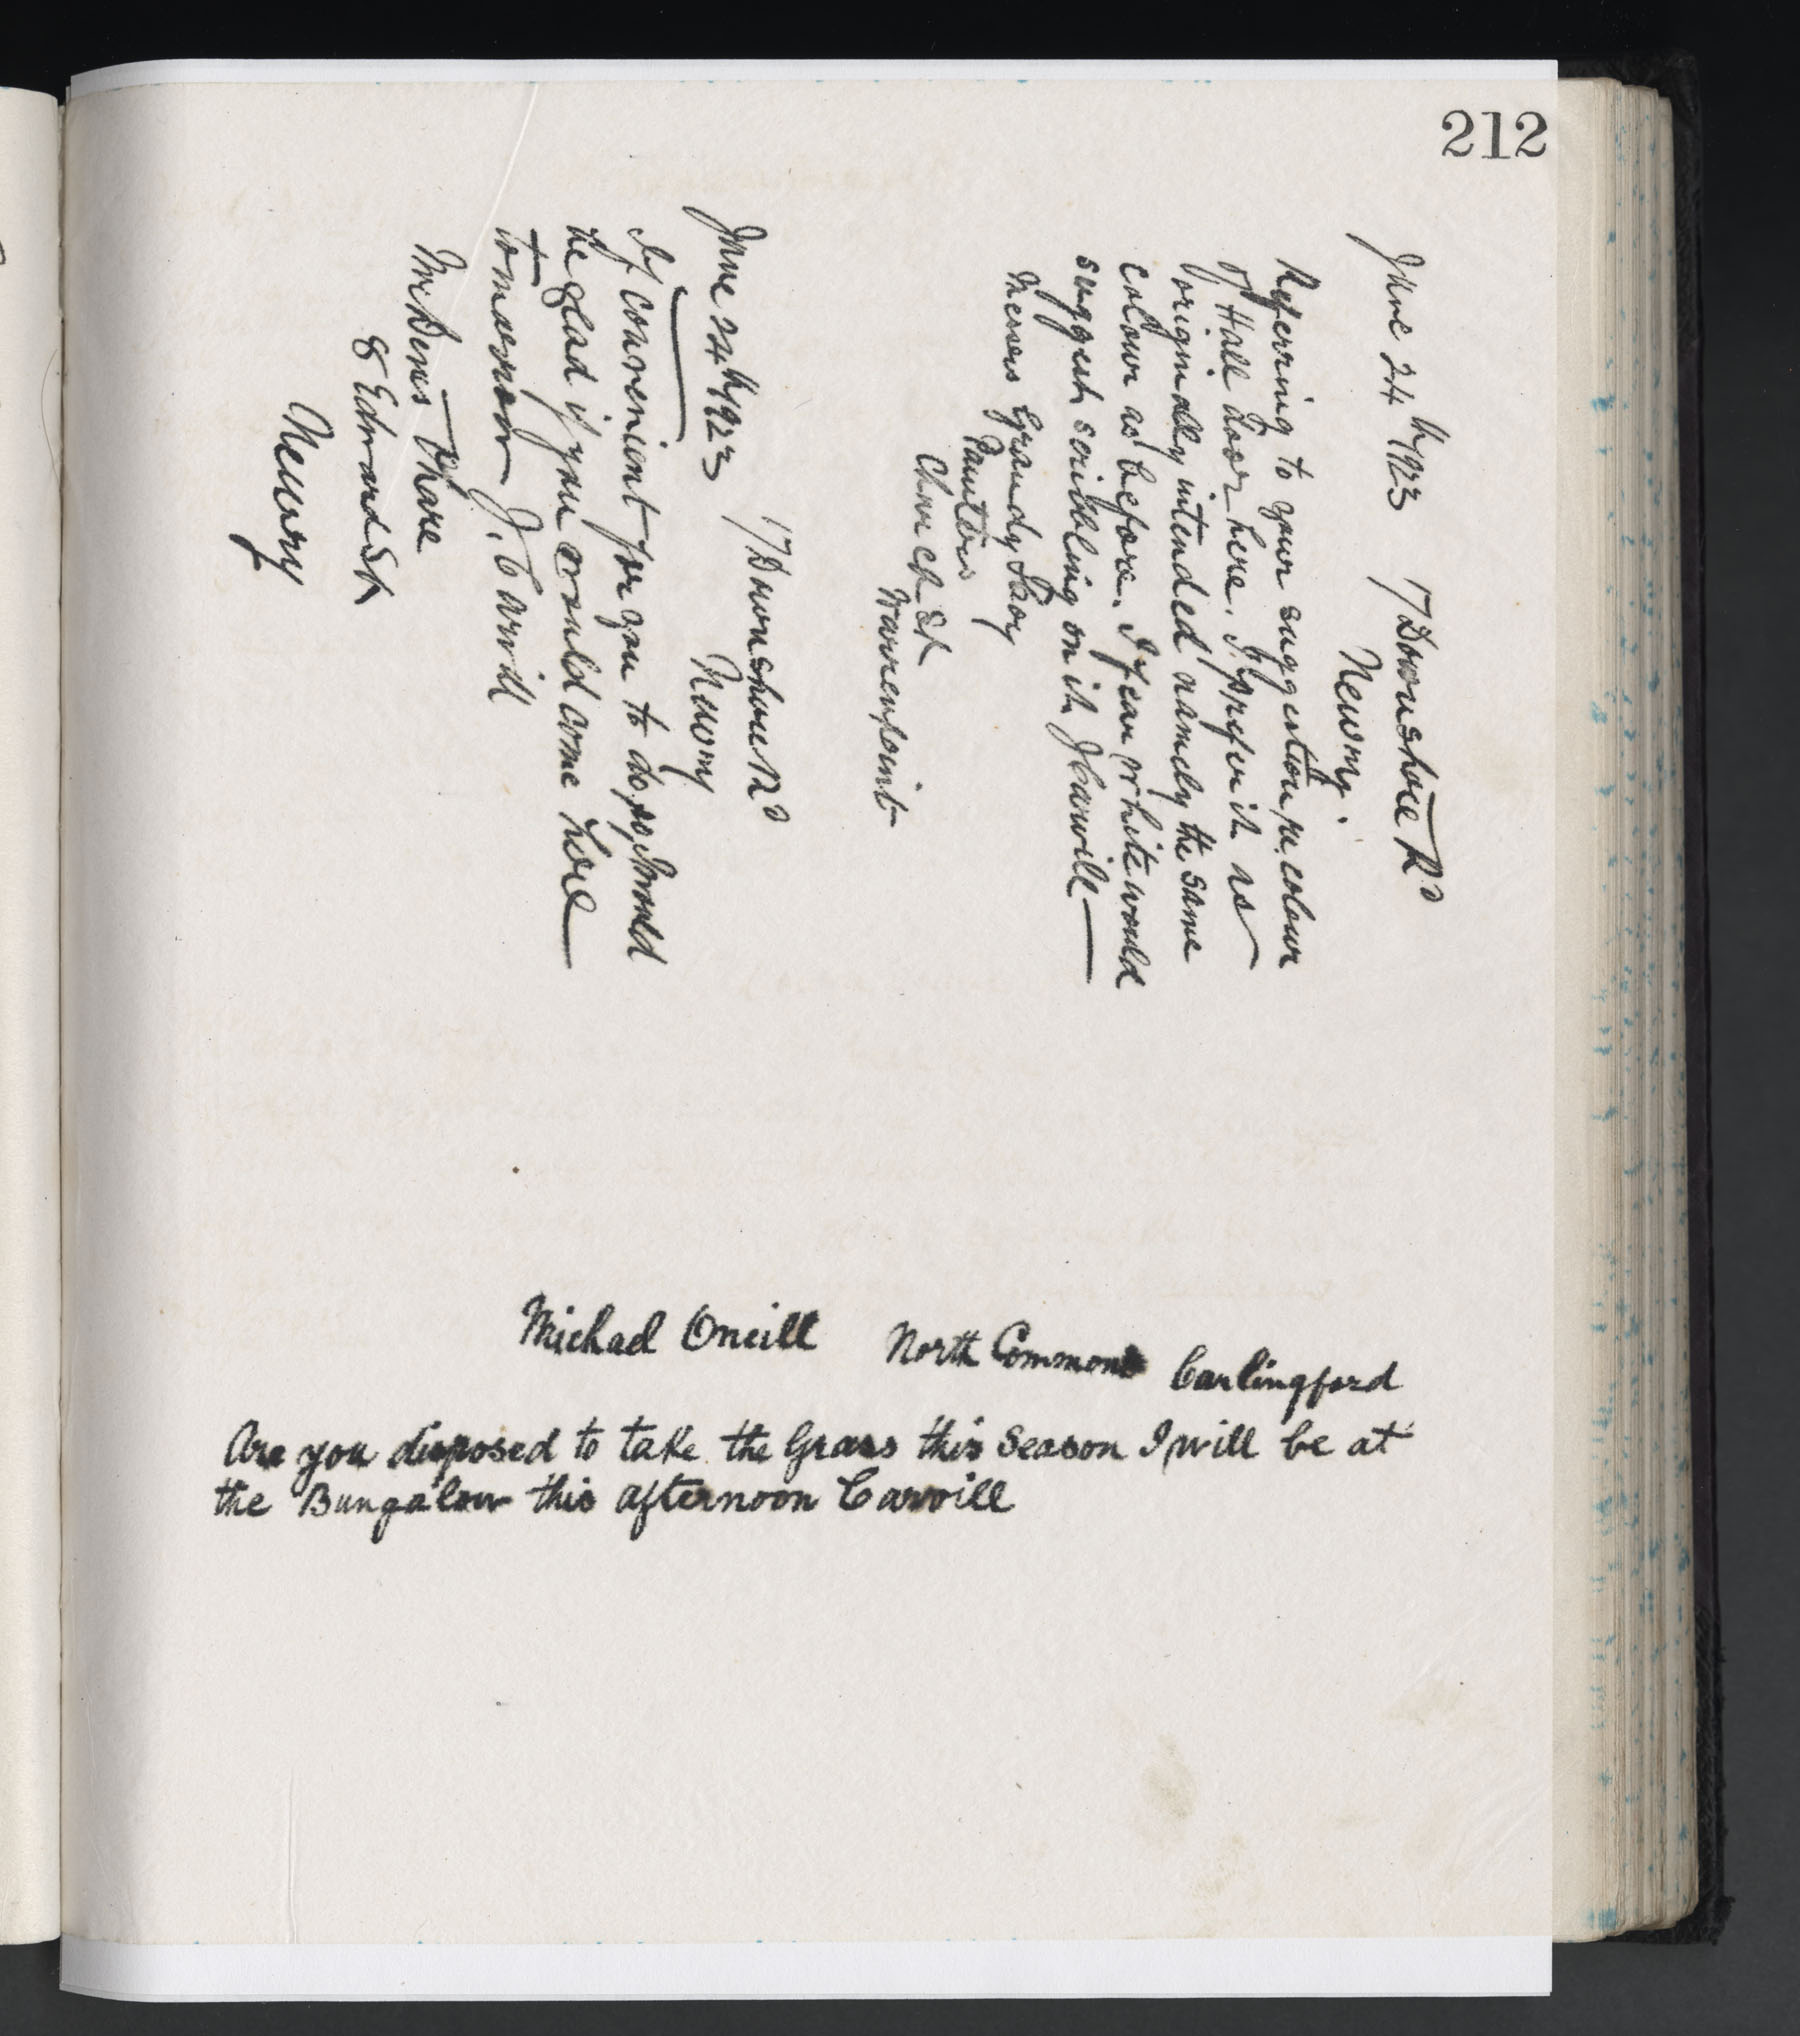 212
June 24th 1923 17 Downshire Rd
Newry.
Referring to your suggestion re. colour
of Hall door here. I prefer it as
originally intended namely the same
colour as before. I fear white would
suggest scribbling on it J Carvill
Messrs Grandy &
Painters
Church St
Warrenpoint
17 Downshire Rd
June 24th 1923 Newry
If convenient for you to do so, I would
be glad if you would come here
tomorrow J. Carvill
Mr Denis
8 Edward St
Newry
Michael Oneill North Commons Carlingford
Are you disposed to take the Grass this Season I will be at
the Bungalow this afternoon Carvill